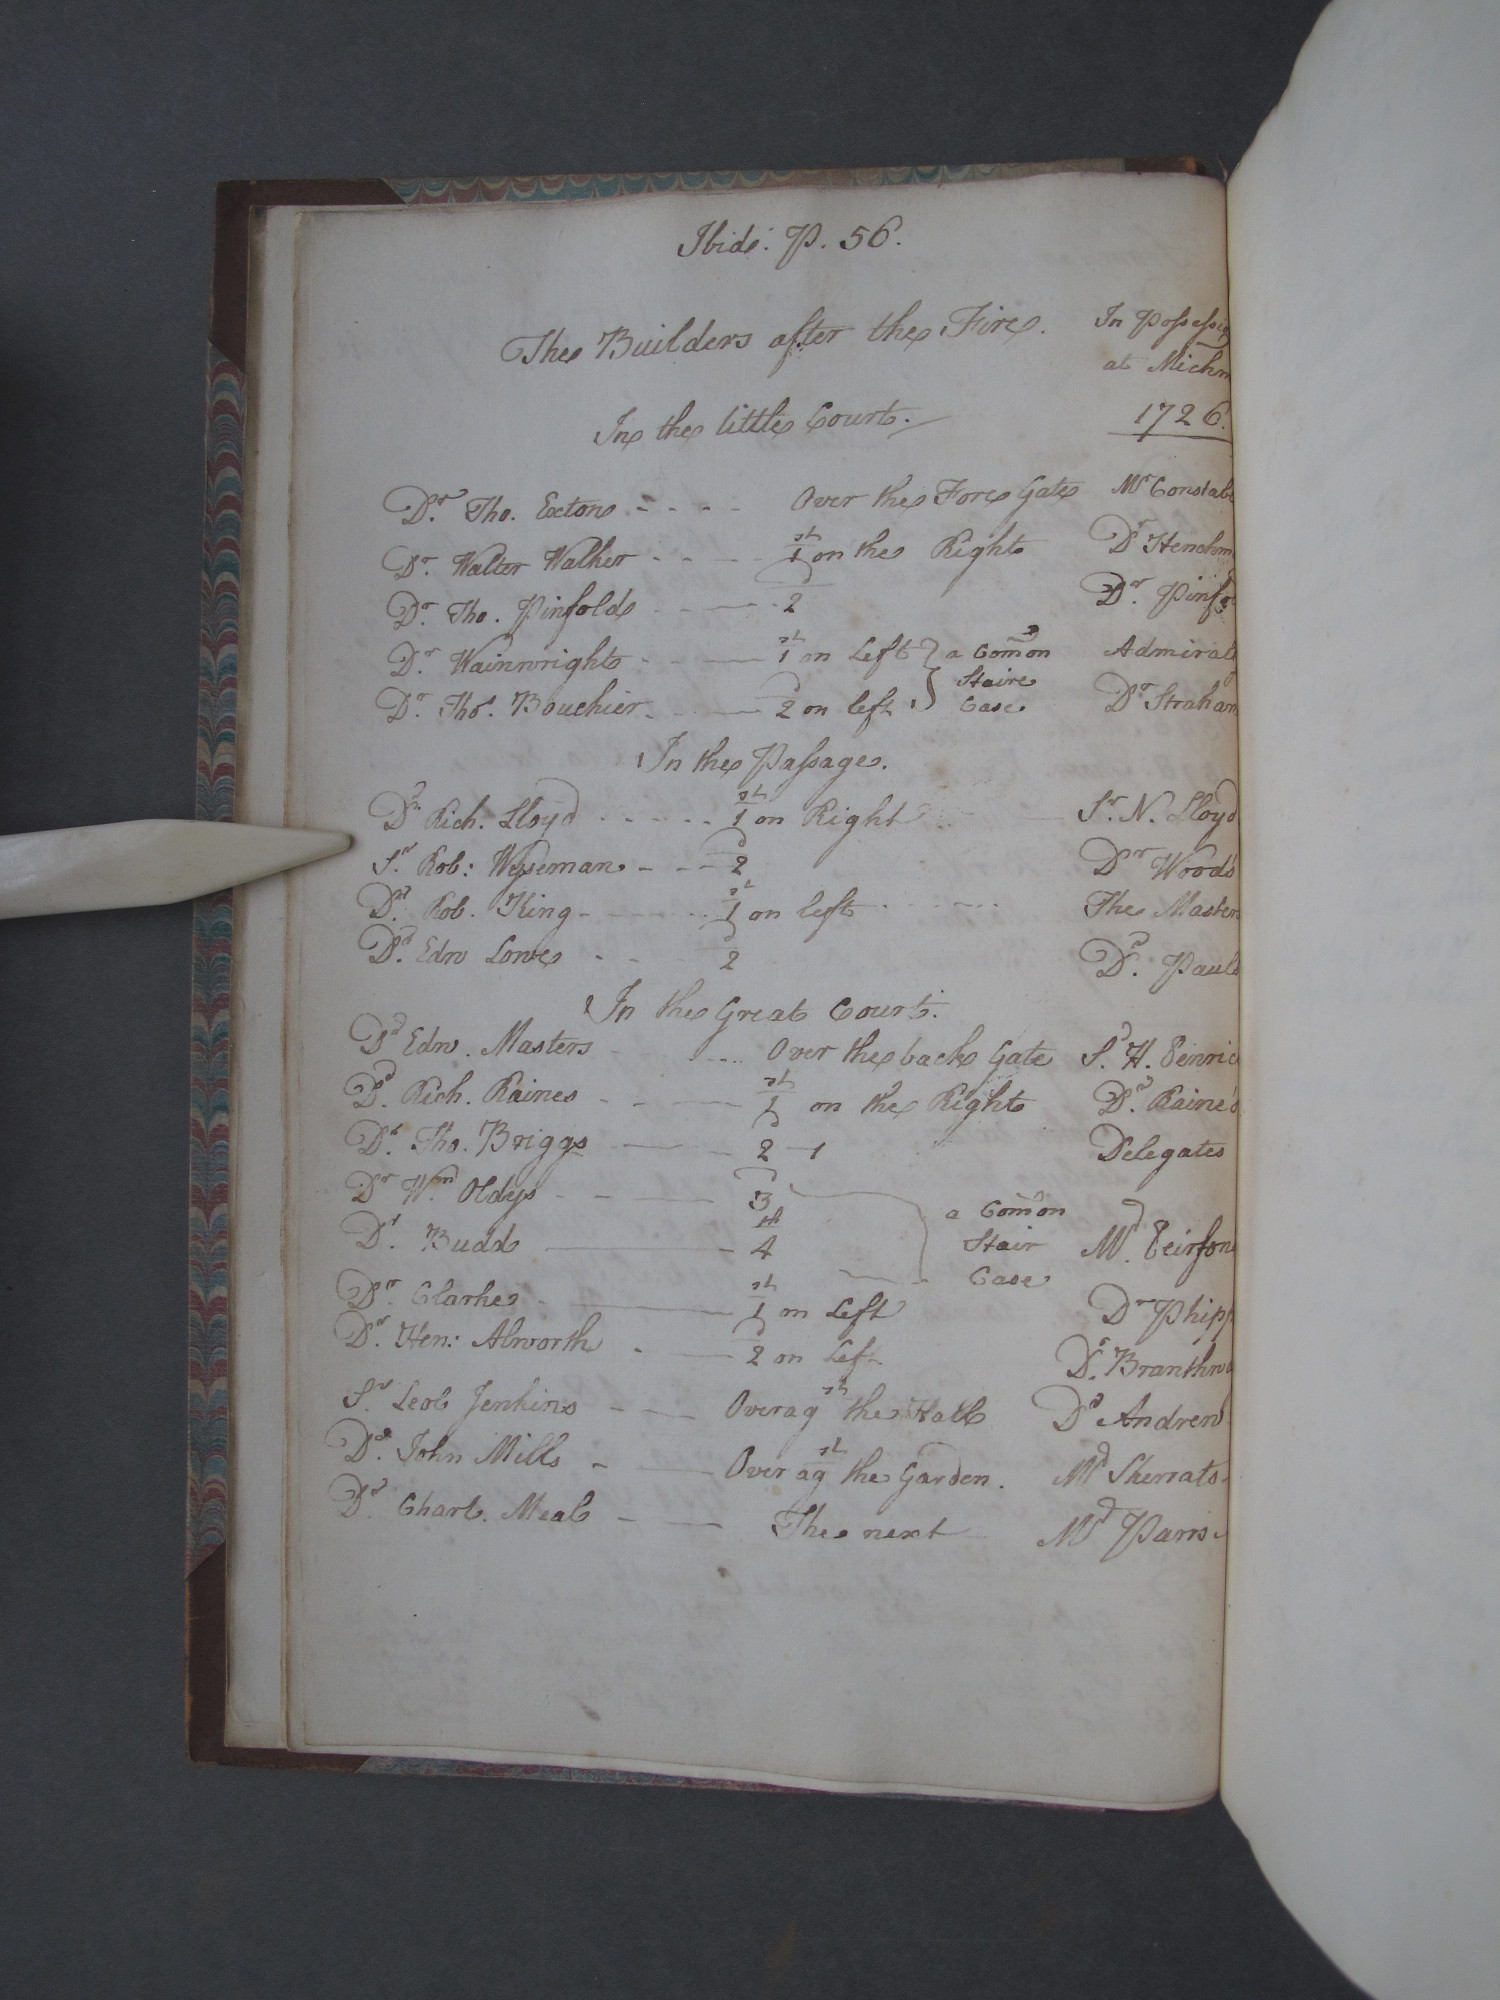 Ibid: P. 56.
The Builders after the Fire. In Possessio
at Michm
In the little Court. 1726.
Dr. Tho. Exton - - - - Over the Fore Gate Mr Constabl
Dr. Walter Walker - - - - 1st on the Right Dr Henchm
Dr. Tho. Pinfold - - - - 2d Dr. Pinfo
Dr. Wainwright - - - 1st on Left } a Comon Admiralt
Dr. Tho. Bouchier - - - 2d on left } Staire Case Dr Straham
In the Passage.
Dr Rich. Lloyd - - - - - 1st on Right Sr. N. Lloyd
Sr. Rob: Wyseman - - - 2d Dr Woods
Dr. Rob. King - - - - - 1st on left The Masters
Dr. Edw Lowe - - - 2d Dr. Paul
In the Great Court.
Dr Edw. Masters - - - Over the back Gate Sr. H. Penric
Dr. Rich. Raines - - - 1st on the Right Dr. Raines
Dr. Tho. Briggs - - 2d Delegates
Dr Wm Oldys - - - 3d a Comon
Dr. Budd - 4th Stair Mr. Peirson
Case
Dr. Clarke - 1st on Left Dr Phipp
Dr. Hen: Alworth - - 2d on Lef Dr. Branthw
Sr. Leol Jenkins - - - Overagst the Hall Dr Andrew
Dr. John Mills - - Over agst the Garden. Mr Sherrats
Dr. Charl. Meal - - - The next Mr Parris